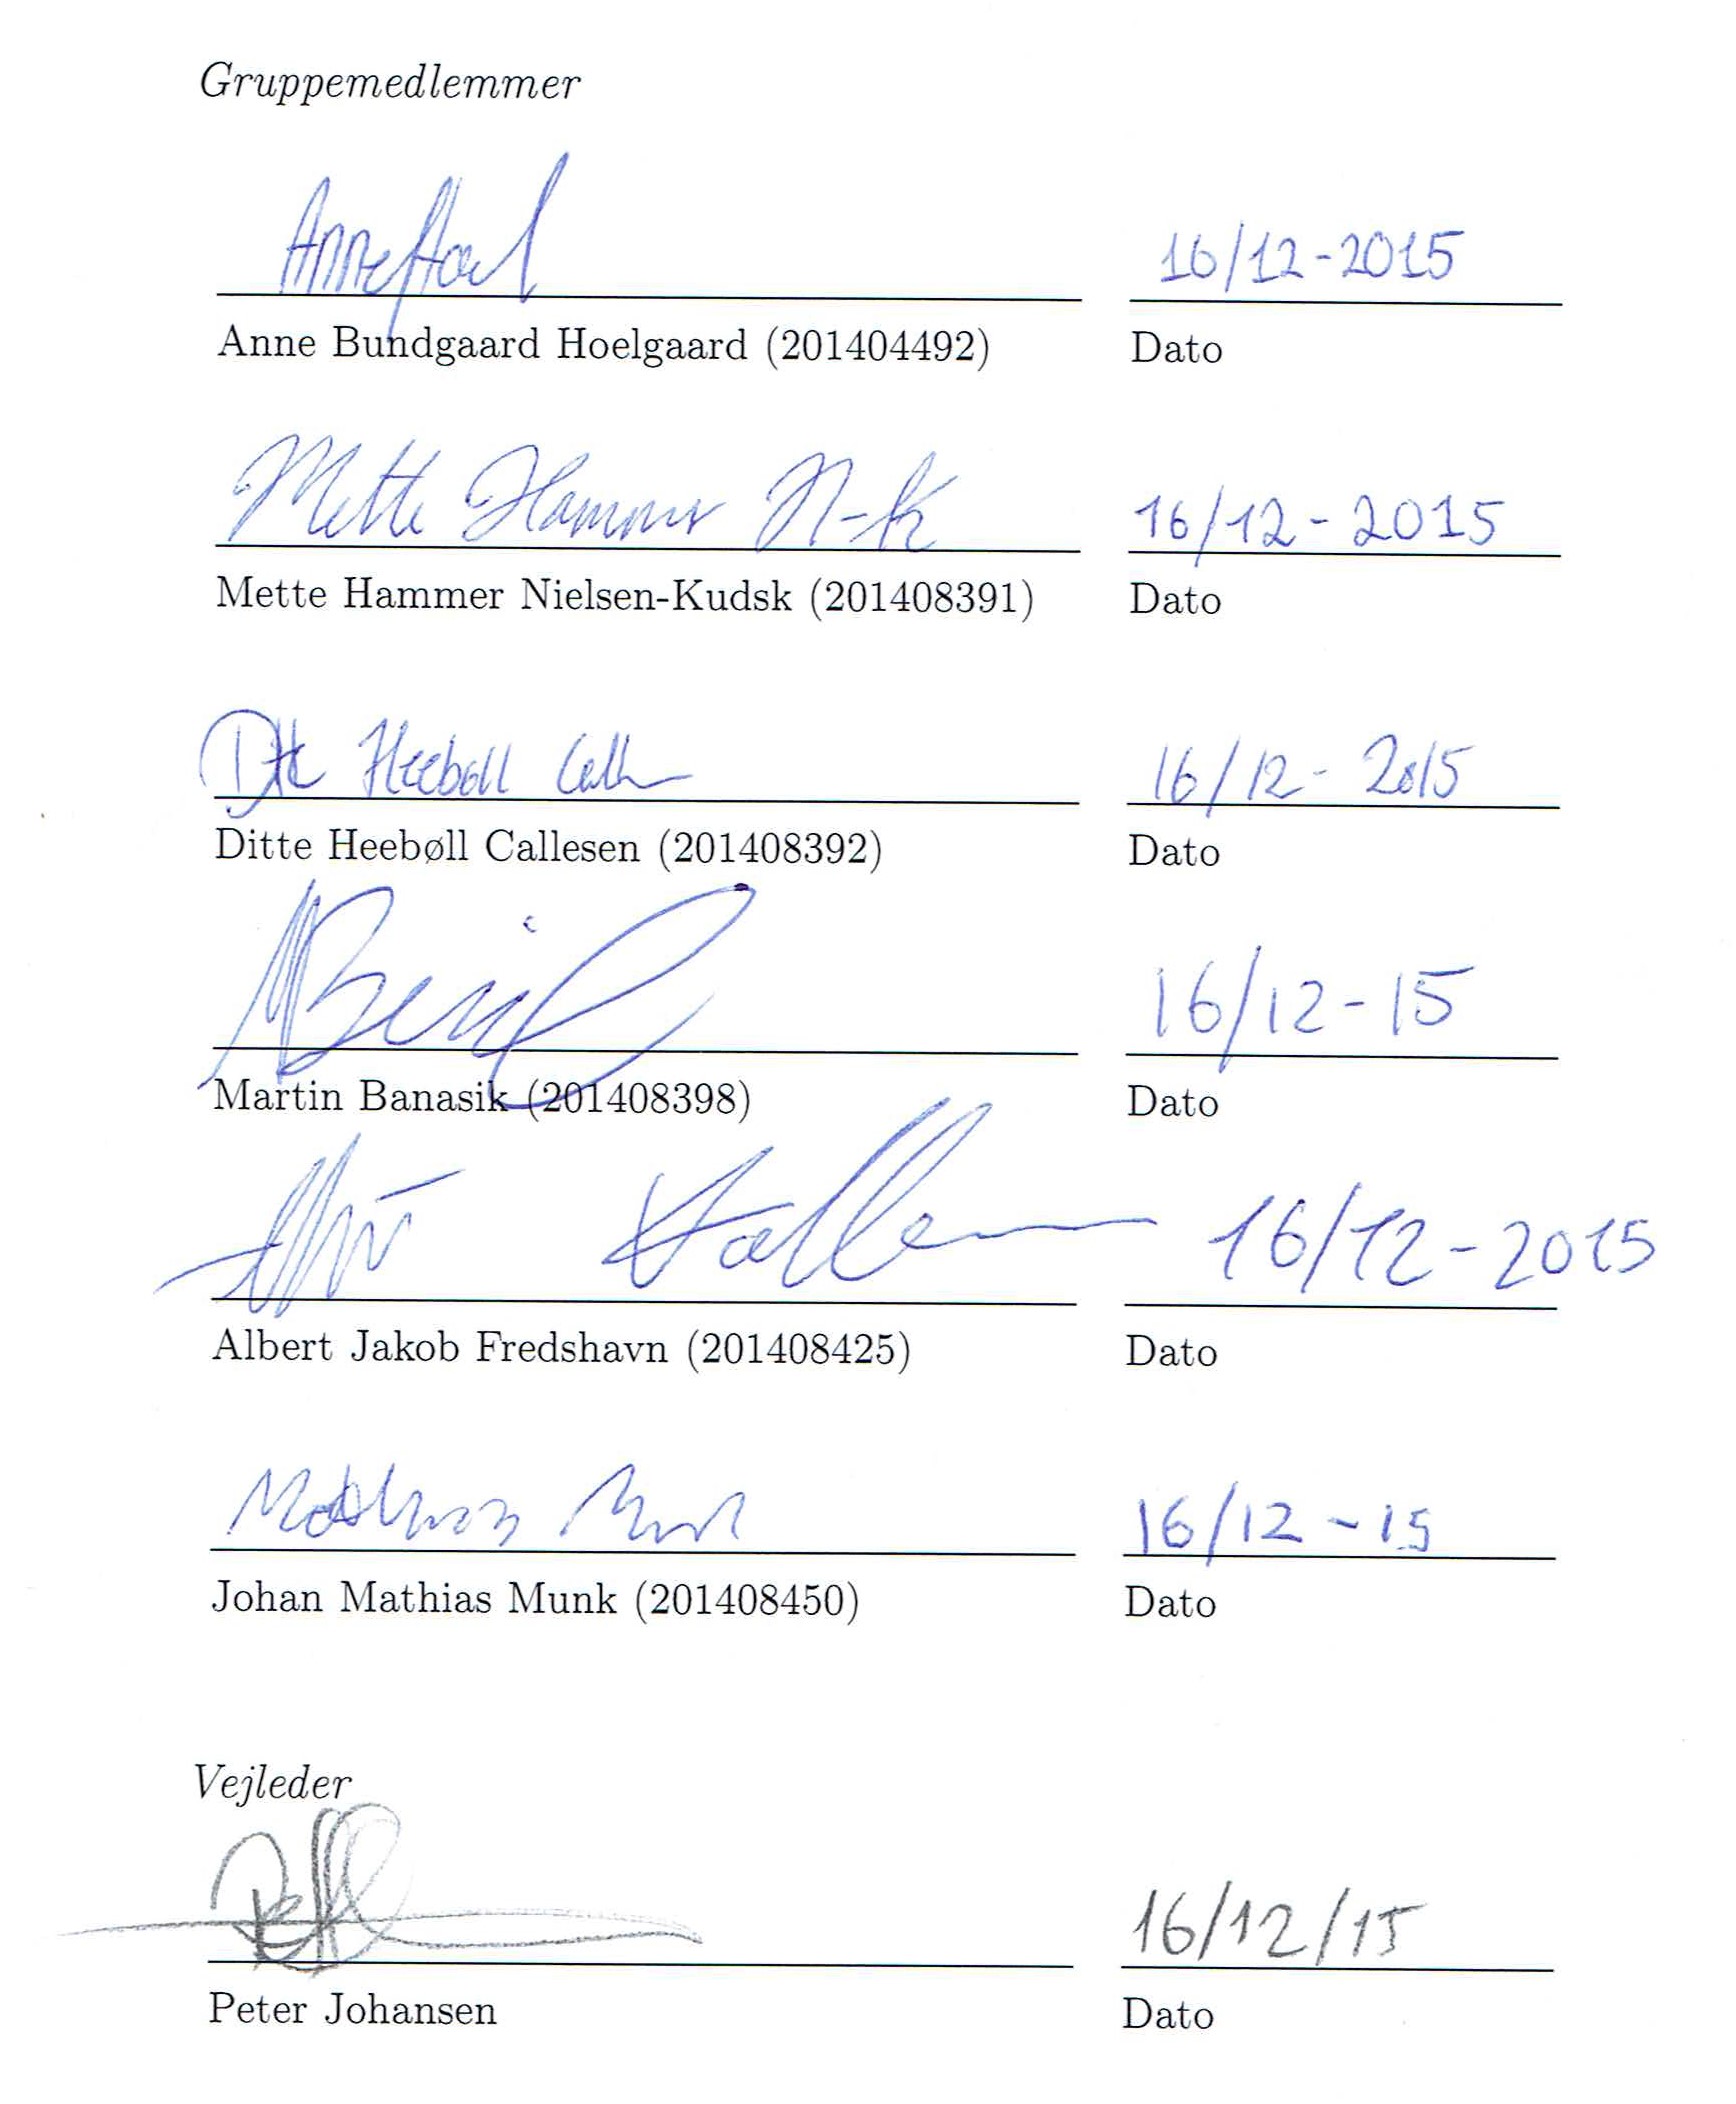 Gruppemedlemmer
16/12-2015
Anne Bundgaard Hoelgaard (201404492) Dato
Mette Hammer N-K 16/12-2015
Mette Hammer Nielsen-Kudsk (201408391) Dato
Ditte Heebøll 16/12-2015
Ditte Heebøll Callesen (201408392) Dato
16/12-15
Martin Banasik (201408398) Dato
16/12-2015
Albert Jakob Fredshavn (201408425) Dato
Mathias Munk 16/12-15
Johan Mathias Munk (201408450) Dato
Vejleder
16/12/15
Peter Johansen Dato